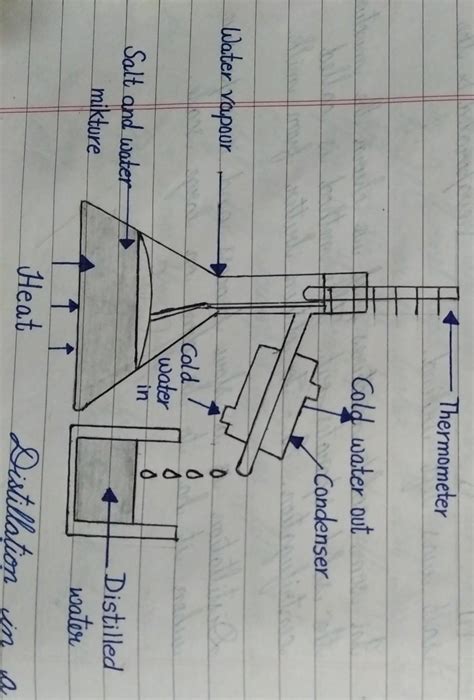 Thermometer
Cold water out
Condenser
Water vapour
Cold
water
in
Salt and water
mikture
Heat
Distilled
water
Distillation in a